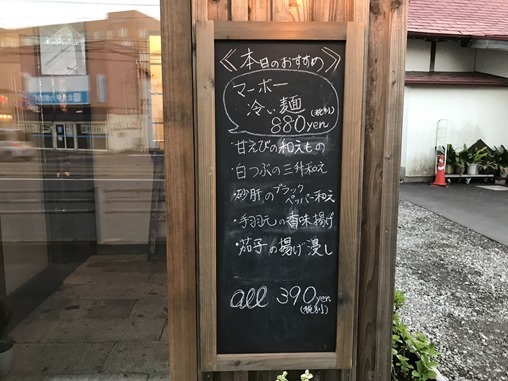 ≪本日のおすすめ≫
マーボー
冷い麺
(税別)
880yen
・甘えびの和えもの
・白つぶの三升和え
・砂肝のブラック
ペッパー和え
・手羽元の香味揚げ
・茄子の揚げ浸し
all 390yen
(税別)